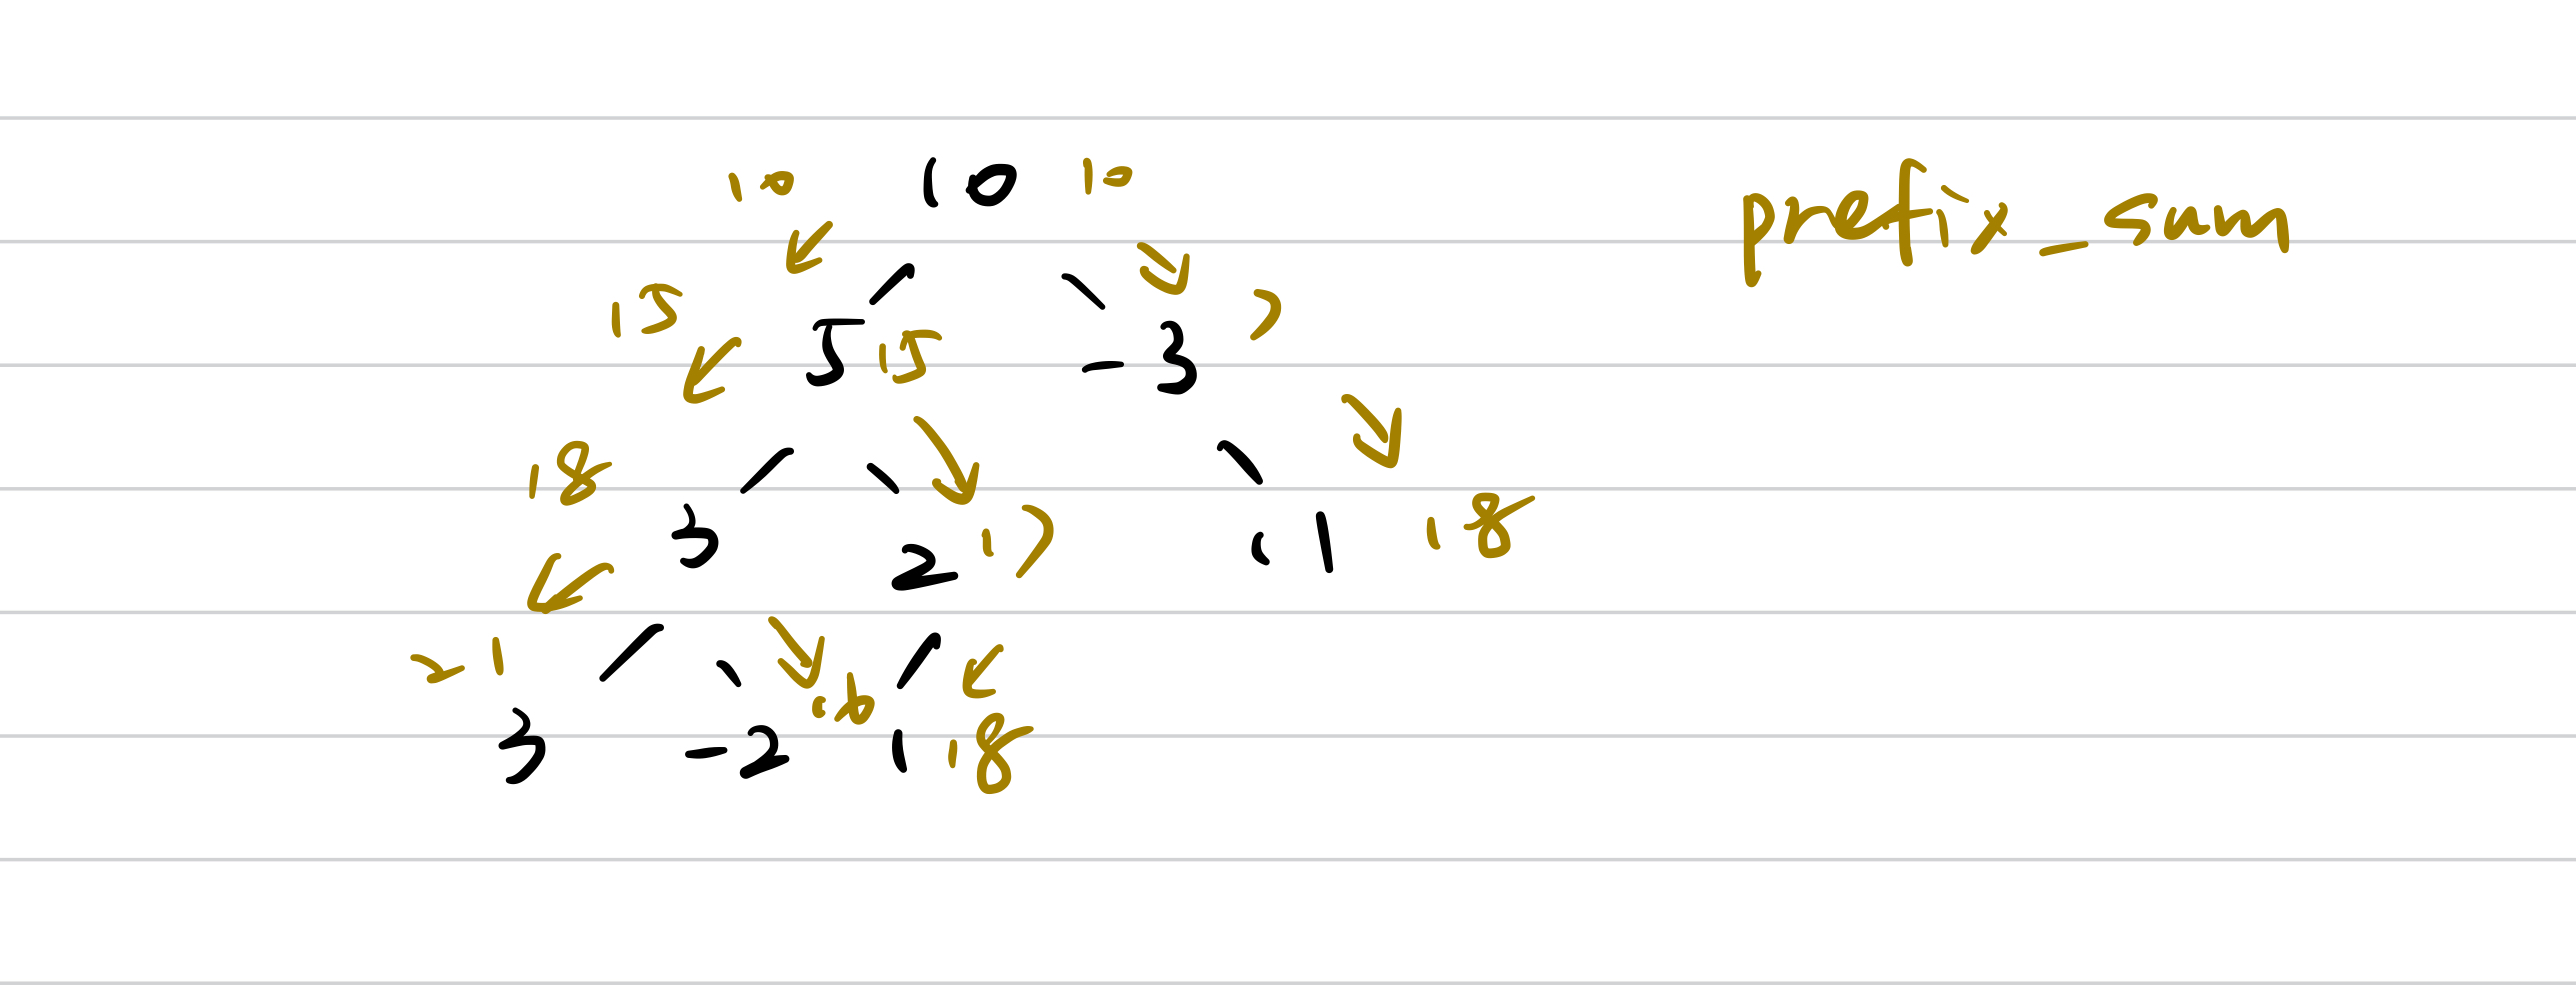 10 10 10 prefix_sum
15 5 15 -3 7
18 3 2 17 11 18
21 16
3 -2 1 18